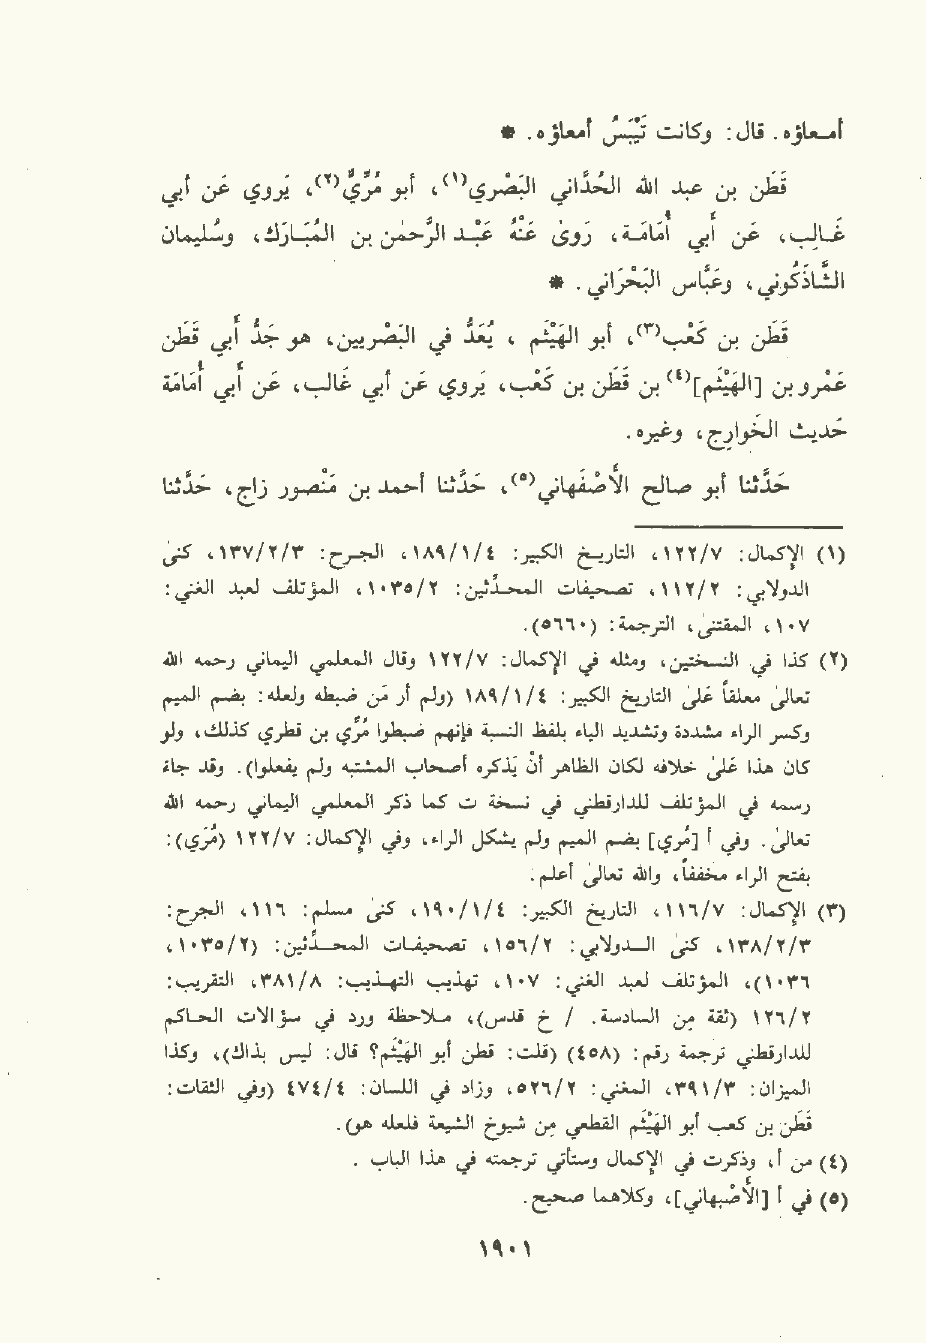 أمـعاؤه. قال: وكانت تَيْبَسُ أمعاؤه. *
قَطَن بن عبد الله الحُدَّاني البَصْري(١)، أبو مُرِّيٌّ(٢)، يَروي عَن أبي
غَـالِـب، عَن أَبي أُمَامَـة، رَوى عَنْهُ عَبْـد الرَّحمن بن المُبَـارَك، وسُلـيمان
الشَّاذَكُوني، وعَبَّاس البَحْرَاني. *
قَطَن بن كَعْب(٣)، أبو الهَيْثَم، يُعَدُّ في البَصْريين، هو جَدُّ أَبي قَطَن
عَمْرو بن [الهَيْثَم](٤) بن قَطَن بن كَعْب، يَروي عَن أبي غَالب، عَن أَبي أُمَامَة
حَديث الخَوارِج، وغيره.
حَدَّثنا أبو صالح الأَصْفَهاني(٥)، حَدَّثنا أحمد بن مَنْصور زاج، حَدَّثنا
(١) الإكمال: ١٢٢/٧، التاريـخ الكبير: ١٨٩/١/٤، الجـرح: ١٣٧/٢/٣، كنىٰ
الدولابي: ١١٢/٢، تصحيفات المحـدِّثين: ١٠٣٥/٢، المؤتلف لعبد الغني:
١٠٧، المقتنىٰ، الترجمة: (٥٦٦٠).
(٢) كذا في النـسختين، ومثله في الإكمال: ١٢٢/٧ وقال المعلمي اليماني رحمه الله
تعالىٰ معلقاً علىٰ التاريخ الكبير: ١٨٩/١/٤ (ولم أر مَن ضبطه ولعله: بضم الميم
وكسر الراء مشددة وتشديد الياء بلفظ النسبة فإنهم ضبطوا مُرِّي بن قطري كذلك، ولو
كان هذا علىٰ خلافه لكان الظاهر أنْ يُذكره أصحاب المشتبه ولم يفعلوا). وقد جاء
رسمه في المؤتلف للدارقطني في نسخة ت كما ذكر المعلمي اليماني رحمه الله
تعالىٰ. وفي أ [مُري] بضم الميم ولم يشكل الراء، وفي الإكمال: ١٢٢/٧ (مُرَي):
بفتح الراء مخففاً، والله تعالىٰ أعلم.
(٣) الإكمال: ١١٦/٧، التاريخ الكبير: ١٩٠/١/٤، كنىٰ مسلم: ١١٦، الجرح:
١٣٨/٢/٣، كنىٰ الـدولابي: ١٥٦/٢، تصحـيفات المحـدِّثين: (١٠٣٥/٢،
١٠٣٦)، المؤتلف لعبد الغني: ١٠٧، تهذيب التهـذيب: ٣٨١/٨، التقريب:
١٢٦/٢ (ثقة من السادسة. / خ قدس)، مـلاحظة ورد في سؤالات الحـاكم
للدارقطني ترجمة رقم: (٤٥٨) (قلت: قطن أبو الهَيْثَم؟ قال: ليس بذاك)، وكذا
الميزان: ٣٩١/٣، المغني: ٥٢٦/٢، وزاد في اللسان: ٤٧٤/٤ (وفي الثقات:
قَطَن بن كعب أبو الهَيْثَم القطعي مِن شيوخ الشيعة فلعله هو).
(٤) من أ، وذكرت في الإكمال وستأتي ترجمته في هذا الباب.
(٥) في أ [الأَصْبهاني]، وكلاهما صحيح.
١٩٠١